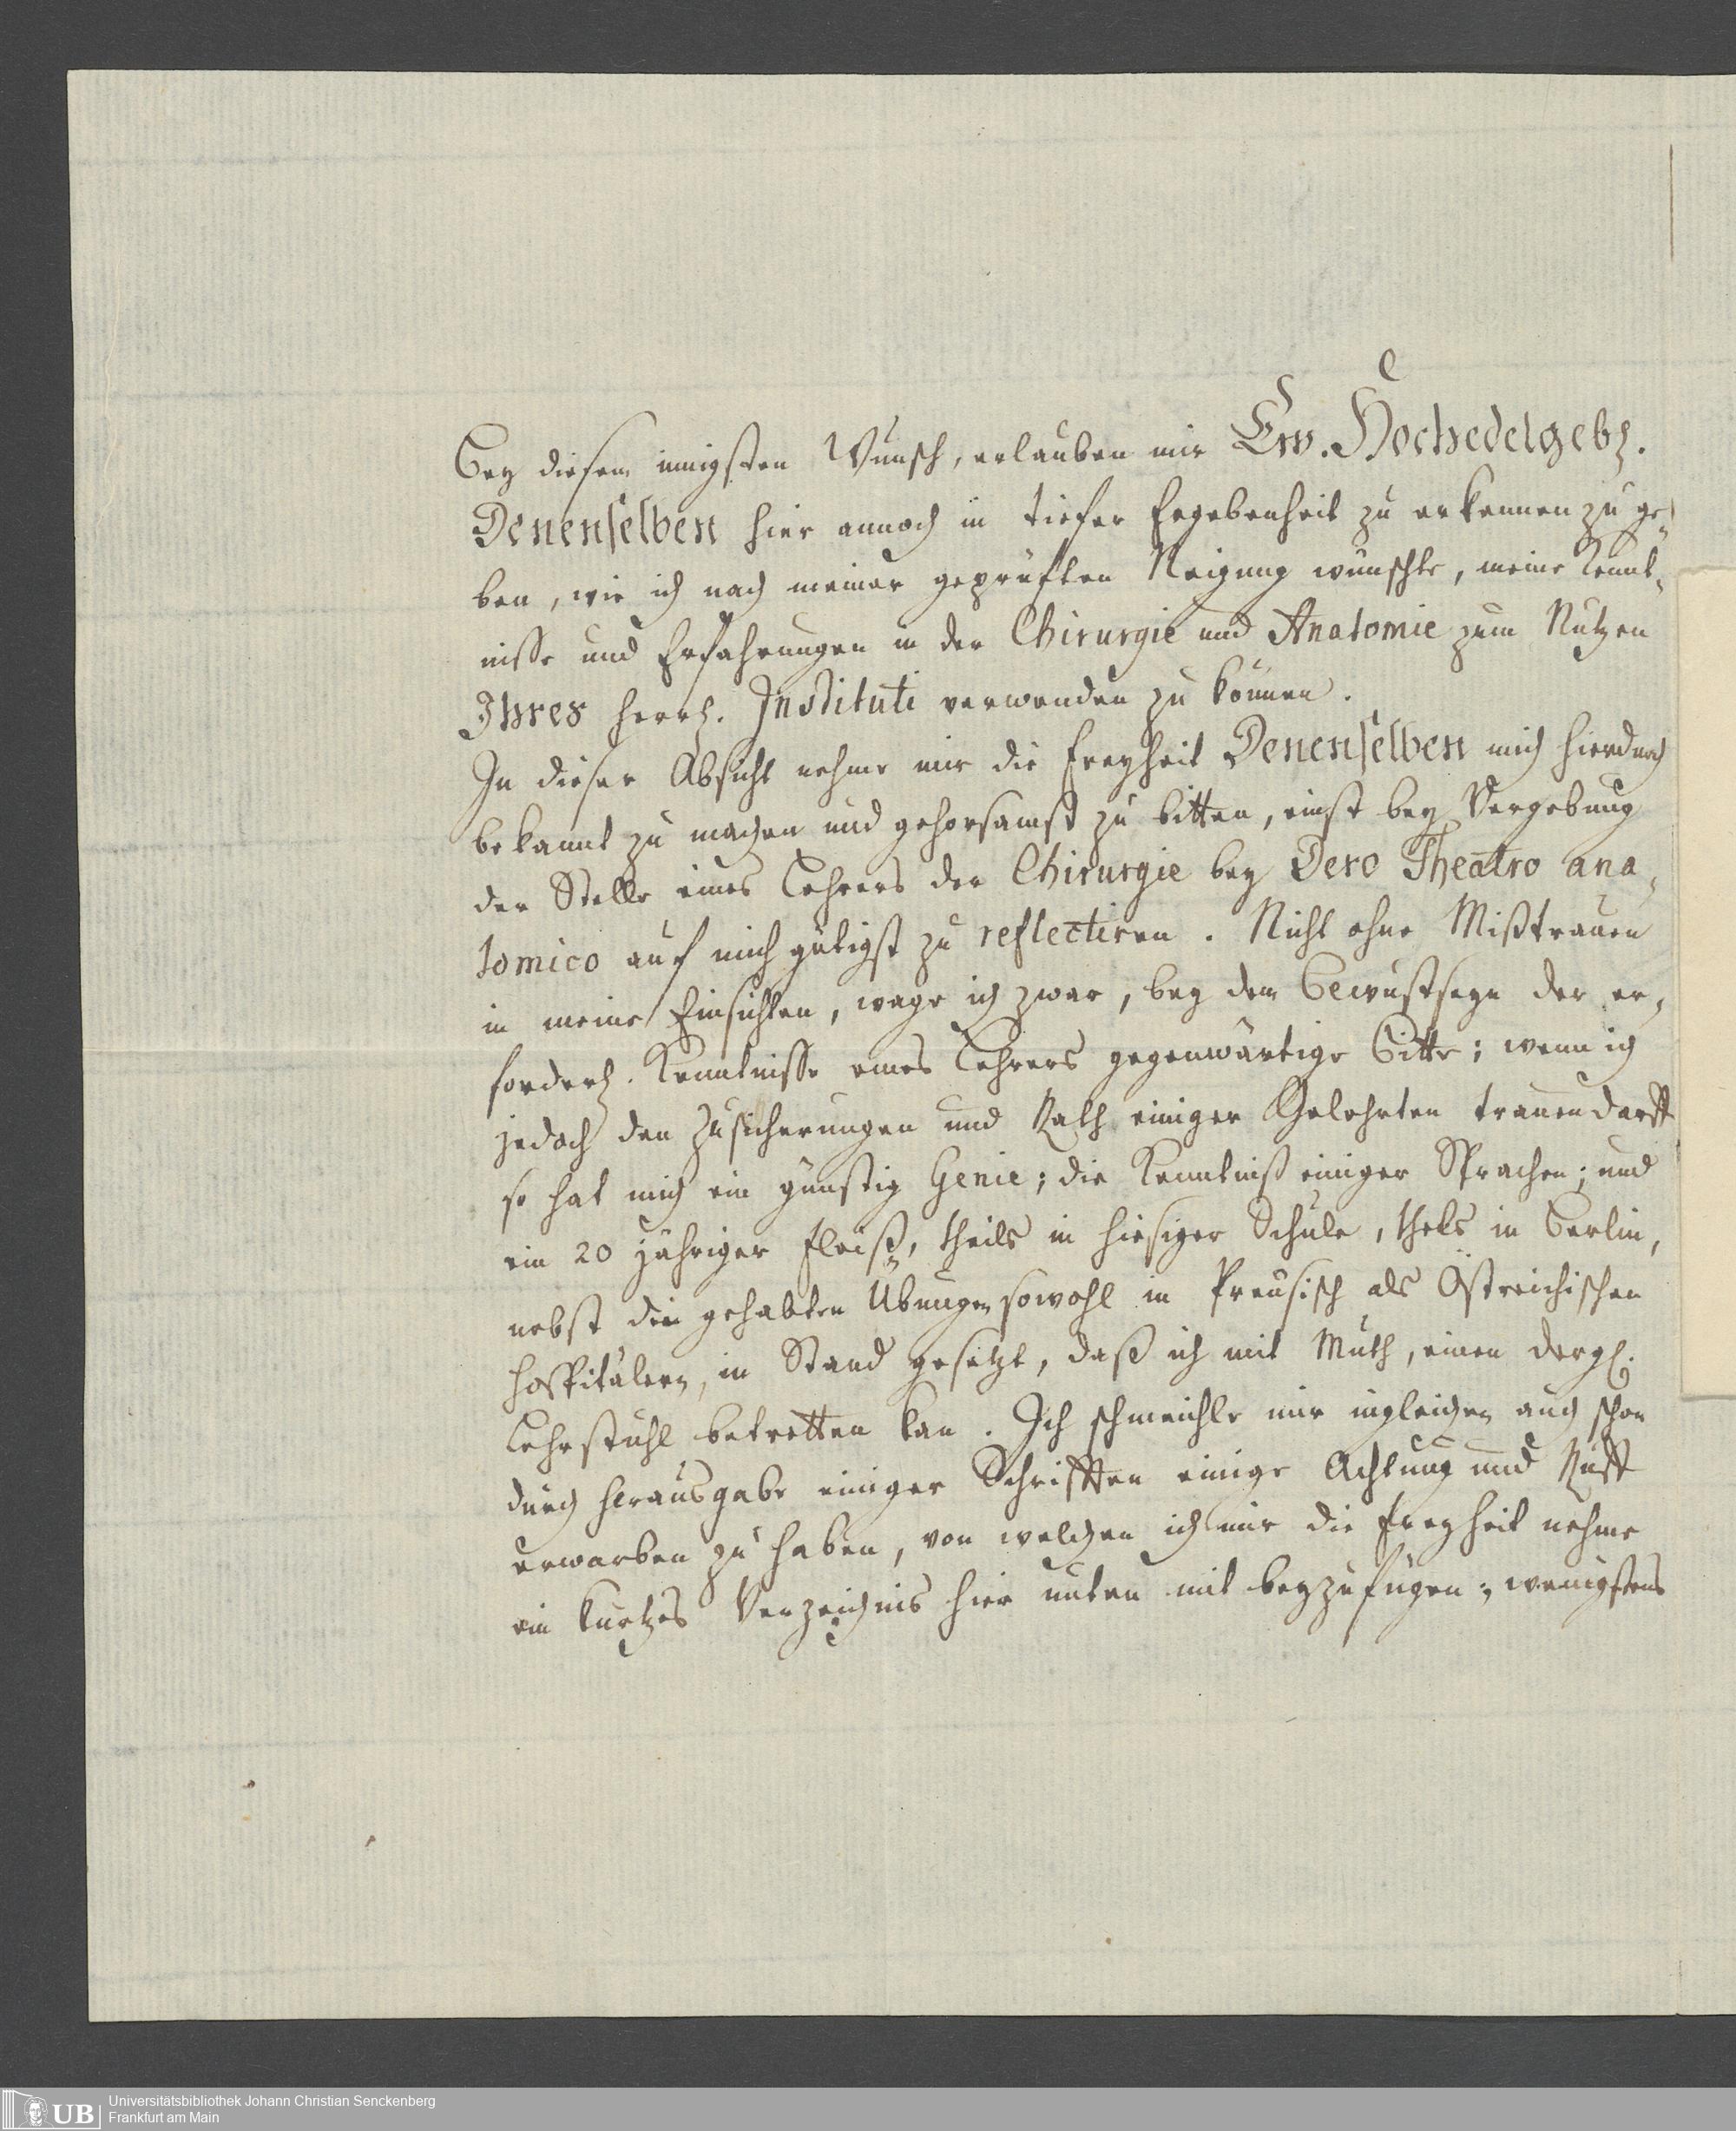 Bey diesem innigsten Wunsch, erlauben mir Ew. Hochedelgeb.
Denenselben hier annoch in tiefer Ergebenheit zu erkennen zu ge-
ben, wie ich nach meiner geprüften Neigung wünschte, meine Kennt-
nisse und Erfahrungen in der Chirurgie und Anatomie zum Nutzen
Ihres herrl. Instituti verwenden zu können.
In dieser Absicht nehme mir die Freyheit Denenselben mich hierdurch
bekannt zu machen und gehorsamst zu bitten, einst bey Vergebung
der Stelle eines Lehrers der Chirurgie bey Dero Theatro ana-
tomico auf mich gütigst zu reflectiren. Nicht ohne Mißtrauen
in meine Einsichten, wage ich zwar, bey dem Bewustseyn der er-
forderl. Kenntnisse eines Lehrers gegenwärtige Bitte; wenn ich
jedoch den Zusicherungen und Rath einiger Gelehrten trauen darff
so hat mich ein günstig Genie; die Kenntniß einiger Sprachen; und
ein 20 jähriger Fleiß, theils in hiesiger Schule, thels in Berlin,
nebst die gehabten Übungen sowohl in Preusisch als Östreichischen
Hospitälern, in Stand gesetzt, daß ich mit Muth, einen dergl.
Lehrstuhl betretten kan. Ich schmeichle mir ingleichen auch schon
durch Herausgabe einiger Schrifften einige Achtung und Ruff
erworben zu haben, von welchen ich mir die Freyheit nehme
ein kurtzes Verzeichnis hier unten mit beyzufügen; wenigstens
UB
Universitätsbibliothek Johann Christian Senckenberg
Frankfurt am Main